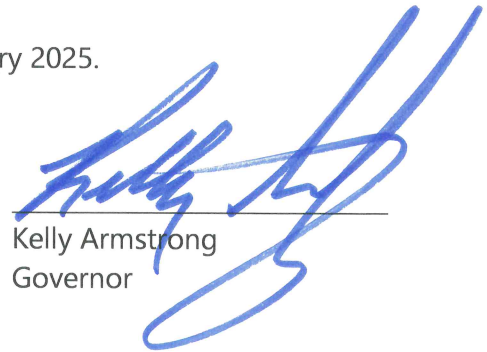 ry 2025.
Kelly Armstrong
Governor